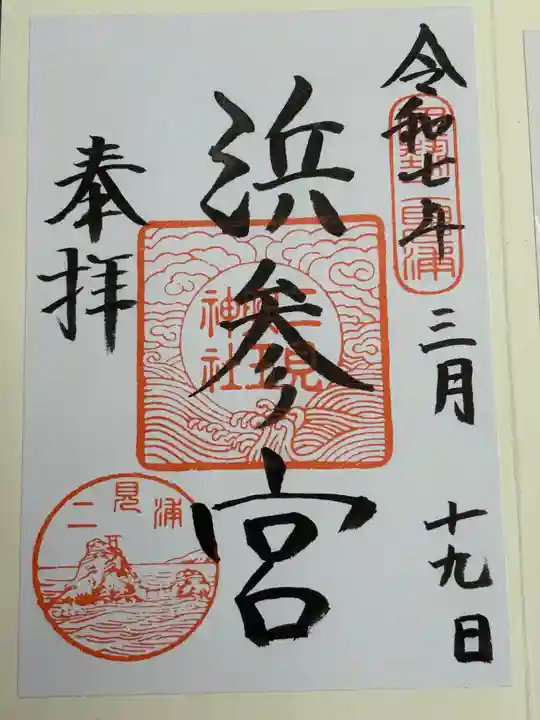 令和七年 三月 十九日
伊勢二見浦
浜参宮
二見
興玉
神社
奉拝
二見浦